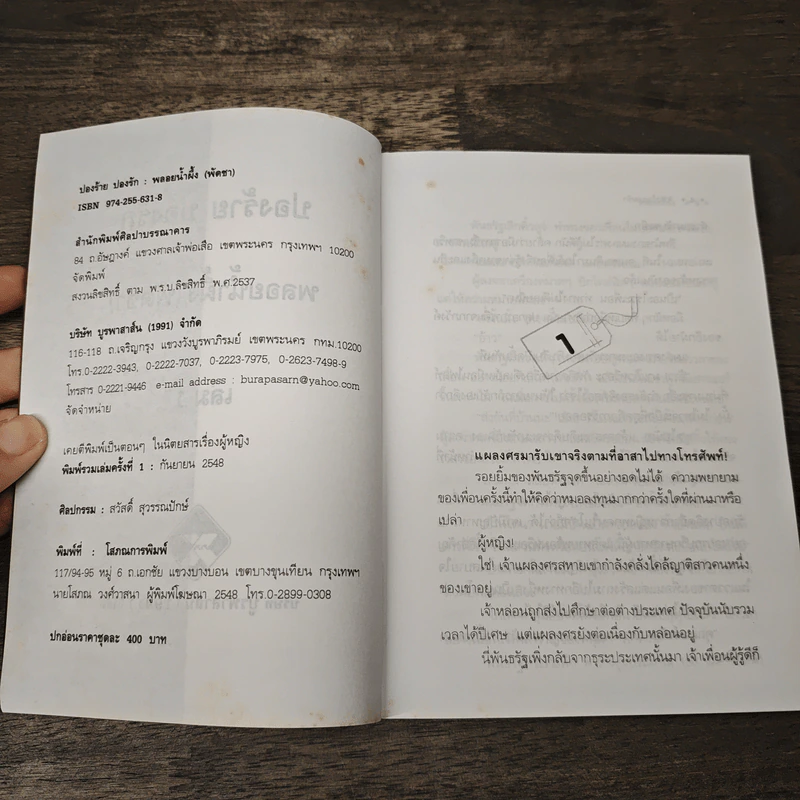 ปองร้าย ปองรัก : พลอยน้ำผึ้ง (พัดชา)
ISBN 974-255-631-8
สำนักพิมพ์ศิลปาบรรณาคาร
84 ถ.อัษฎางค์ แขวงศาลเจ้าพ่อเสือ เขตพระนคร กรุงเทพฯ 10200
จัดพิมพ์
สงวนลิขสิทธิ์ ตาม พ.ร.บ.ลิขสิทธิ์ พ.ศ.2537
บริษัท บูรพาสาส์น (1991) จำกัด
116-118 ถ.เจริญกรุง แขวงวังบูรพาภิรมย์ เขตพระนคร กทม.10200
โทร.0-2222-3943, 0-2222-7037, 0-2223-7975, 0-2623-7498-9
โทรสาร 0-2221-9446 e-mail address : burapasarn@yahoo.com
จัดจำหน่าย
เคยตีพิมพ์เป็นตอนๆ ในนิตยสารเรื่องผู้หญิง
พิมพ์รวมเล่มครั้งที่ 1 : กันยายน 2548
ศิลปกรรม : สวัสดิ์ สุวรรณปักษ์
พิมพ์ที่ : โสภณการพิมพ์
117/94-95 หมู่ 6 ถ.เอกชัย แขวงบางบอน เขตบางขุนเทียน กรุงเทพฯ
นายโสภณ วงศ์วาสนา ผู้พิมพ์โฆษณา 2548 โทร.0-2899-0308
ปกอ่อนราคาชุดละ 400 บาท
1
แผลงศรมารับเขาจริงตามที่อาสาไปทางโทรศัพท์!
รอยยิ้มของพันธรัฐจุดขึ้นอย่างอดไม่ได้ ความพยายาม
ของเพื่อนครั้งนี้ทำให้คิดว่าหมอลงทุนมากกว่าครั้งใดที่ผ่านมาหรือ
เปล่า
ผู้หญิง!
ใช่! เจ้าแผลงศรสหายเขากำลังคลั่งไคล้ญาติสาวคนหนึ่ง
ของเขาอยู่
เจ้าหล่อนถูกส่งไปศึกษาต่อต่างประเทศ ปัจจุบันนับรวม
เวลาได้ปีเศษ แต่แผลงศรยังต่อเนื่องกับหล่อนอยู่
นี่พันธรัฐเพิ่งกลับจากธุระประเทศนั้นมา เจ้าเพื่อนผู้รู้ดีก็